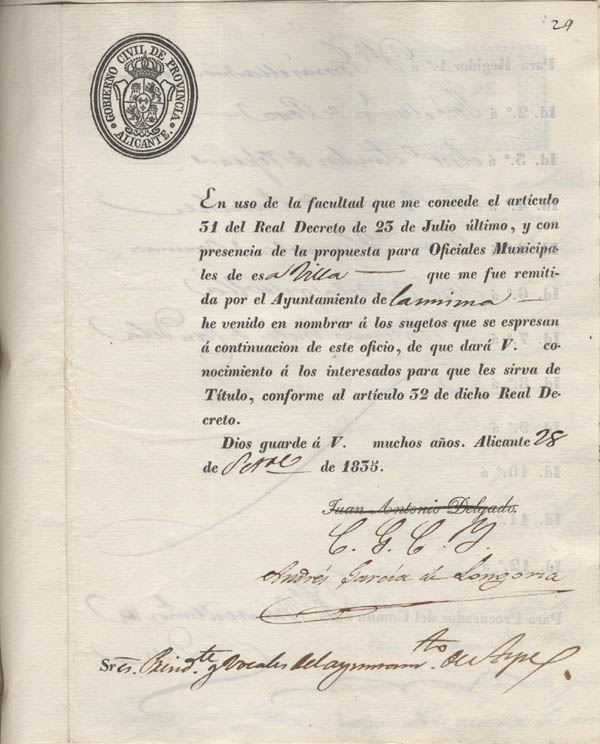 29
GOBIERNO CIVIL DE PROVINCIA.
ALICANTE.
En uso de la facultad que me concede el artículo
31 del Real Decreto de 23 de Julio último, y con
presencia de la propuesta para Oficiales Municipa-
les de esa Villa que me fue remiti-
da por el Ayuntamiento de la misma
he venido en nombrar á los sugetos que se espresan
á continuacion de este oficio, de que dará V. co-
nocimiento á los interesados para que les sirva de
Título, conforme al artículo 32 de dicho Real De-
creto.
Dios guarde á V. muchos años. Alicante 28
de 8bre de 1835.
Juan Antonio Delgado.
C. G. C. Y.
Andrés García de Longoria
Sres. Presid.te y Vocales del ayuntam.to de Aspe.